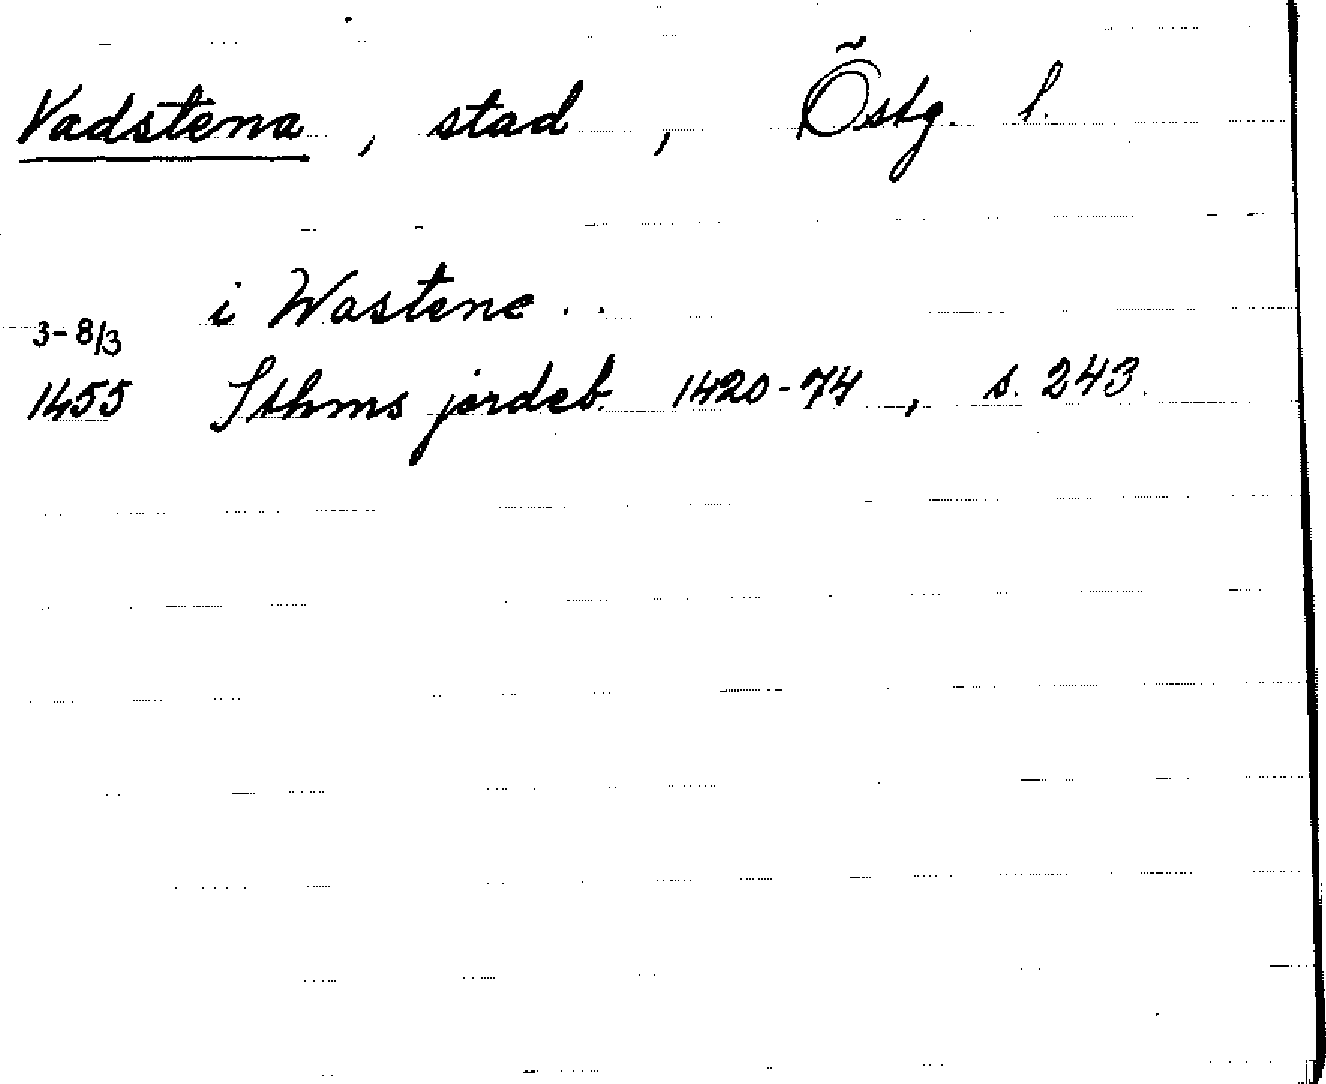 Vadstena, stad, Östg. l.
i Wastene..
3-8/3
1455 Sthms jordeb. 1420-74, s. 243.